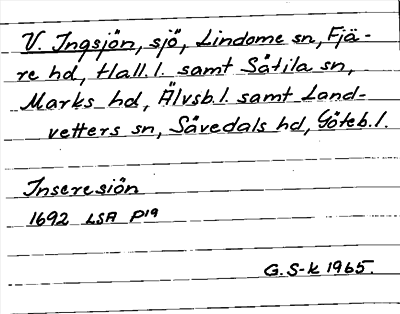 V. Ingsjön, sjö, Lindome sn, Fjä-
re hd, Hall. l. samt Sätila sn,
Marks hd, Älvsb. l. samt Land-
vetters sn, Sävedals hd, Göteb. l.
Inseresiön
1692 LSA P19
G. S-k 1965.